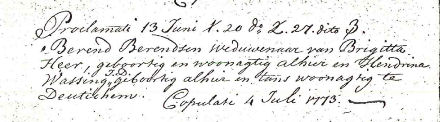 Proclamati 13 Juni 1. 20 do 2. 27. dito 3.
Berend Berendsen weduwenaar van Brigitta
Heer, geboortig en woonagtig alhier en Hendrina
Wassing, J.D. geboortig alhier en tans woonagtig te
Deutichem.
Copulati 4 Juli 1773.